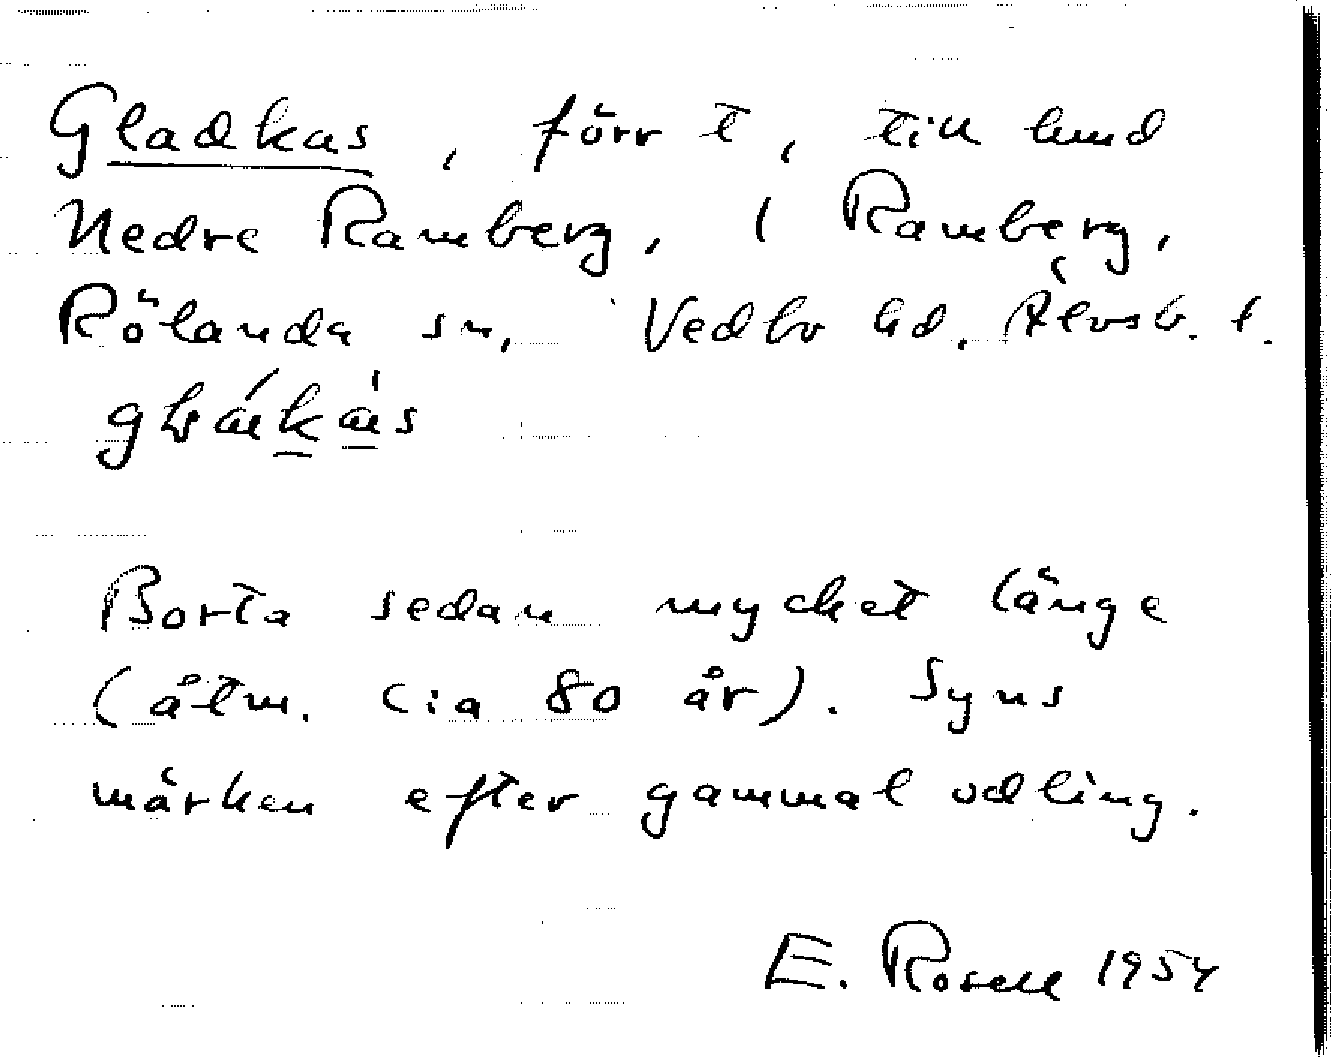 Gladkas, förr t, till lund
Nedre Ramberg, 1 Ramberg,
Rölanda sn, Vedbo hd. Älvsb. l.
Borta sedan mycket länge
(åtm. cia 80 år). Syns
märken efter gammal odling.
E. Rosell 1954